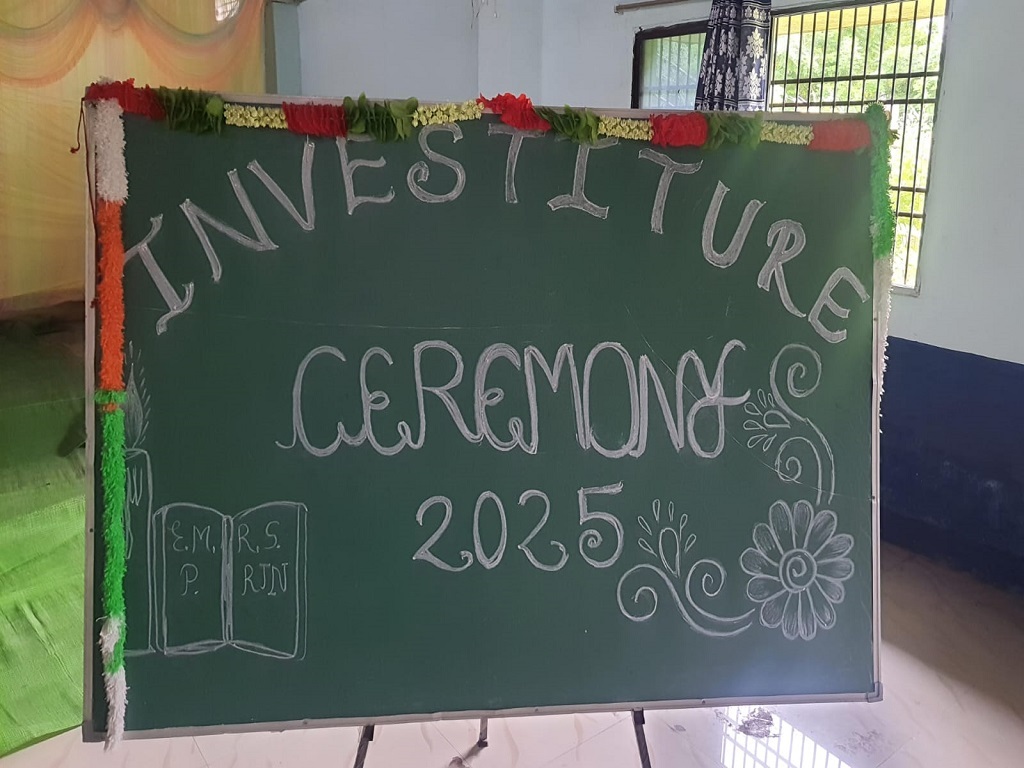 INVESTITURE
CEREMONY
2025
E.M. R.S.
P. RJN